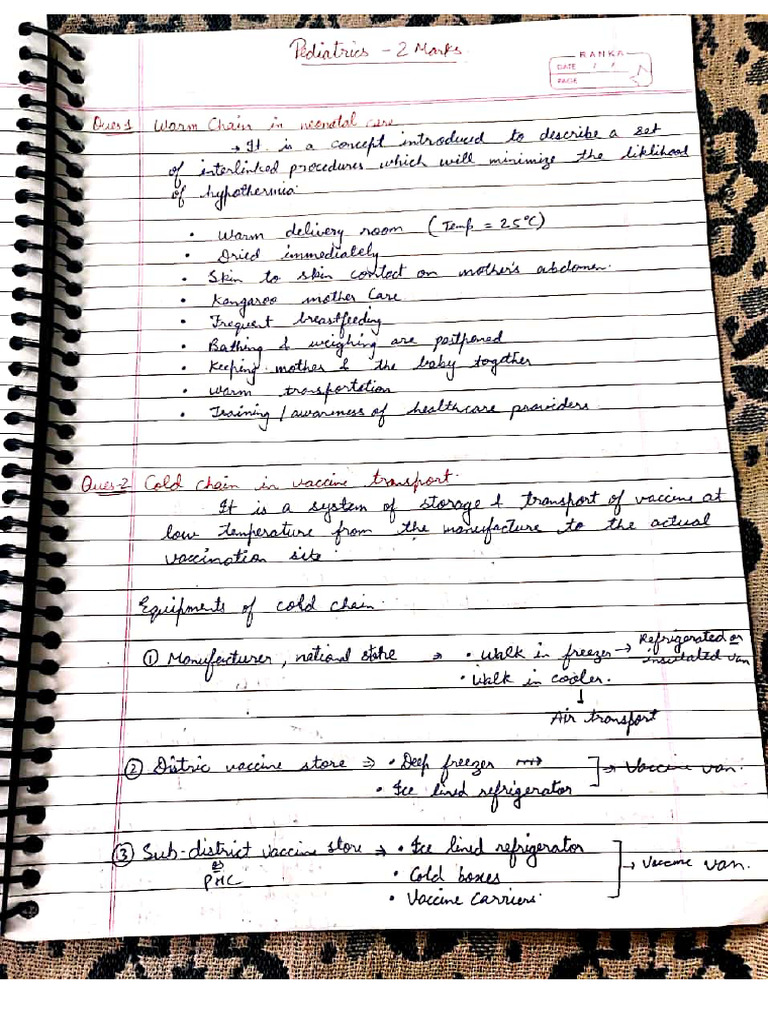 Pediatrics - 2 Marks
RANKA
DATE / /
PAGE
Ques-1 Warm Chain in neonatal care
→ It is a concept introduced to describe a set
of interlinked procedures which will minimize the liklihood
of hypothermia.
• Warm delivery room (Temp = 25°C)
• Dried immediately
• Skin to skin contact on mother's abdomen.
• Kangaroo mother Care
• Frequent breastfeeding
• Bathing & weighing are postponed
• Keeping mother & the baby together
• Warm transportation
• Training / awareness of healthcare providers.
Ques-2 Cold chain in vaccine transport.
It is a system of storage & transport of vaccine at
low temperature from the manufacture to the actual
vaccination site.
Equipments of cold chain.
① Manufacturer, national store ⇒ • Walk in freezer → Refrigerated or
insulated van
• Walk in cooler.
↓
Air transport
② Distric vaccine store ⇒ • Deep freezer
• Ice lined refrigerator → Vaccine van.
③ Sub-district vaccine store ⇒ • Ice lined refrigerator
PHC • Cold boxes → Vaccine van.
• Vaccine Carriers.